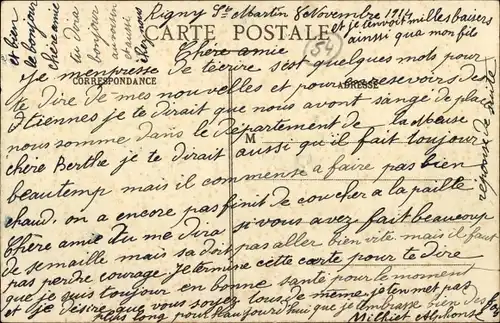 Rigny St Martin 8 Novembre 1914
et je t'envoit milles baisers
ainsi qua mon fils
CARTE POSTALE
54
Chère amie
Je m'empresse de t'écrire s'est quelques mots pour
CORRESPONDANCE
ADRESSE
te dire de mes nouvelles et pour resevoirs de
tiennes je te dirait que nous avont sangé de place
nous somme dans le département de la Meuse
M
chère Berthe je te dirait aussi qu'il fait toujour
beautemp mais il commense a faire pas bien
chaud. on a encore pas finit de coucher a la paille
Chère amie tu me dira si vous avez fait beaucoup
de semaille mais sa doit pas aller bien vite mais il ne
pas perdre courage. Je termine cette carte pour te dire
que je suis toujour en bonne santé pour le moment
et je désire que vous soyez tous de même je t'en met pas
plus long pour aujourd'hui que je t'embrasse bien des
Milliet Alphonse
et bien
le bonjour
chère amie
tu dira
bonjour
réponse de suite